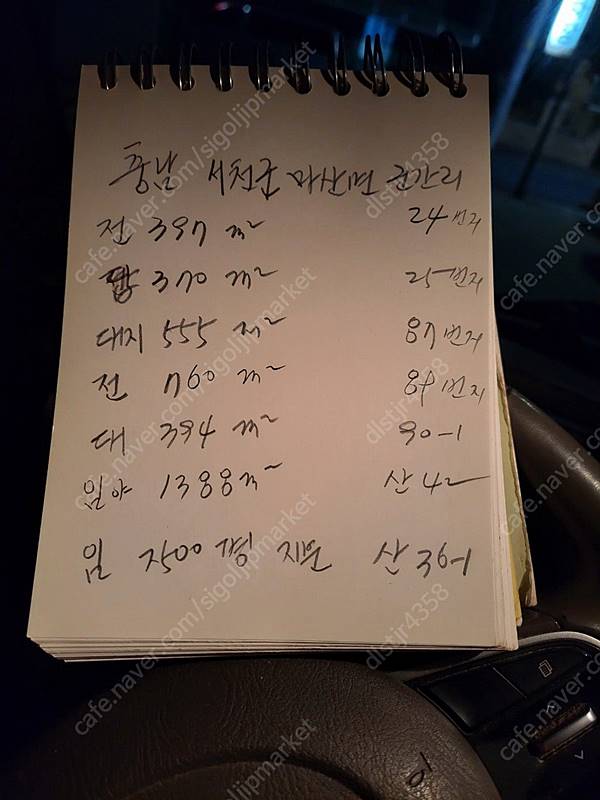 충남 서천군 마산면 군간리
전 397 m² 24 번지
답 370 m² 25 번지
대지 555 m² 87 번지
전 760 m² 89 번지
대 394 m² 90-1
임야 1388 m² 산 42
임 2500 평 지분 산 36-1
cafe.naver.com/sigoljipmarket
dlstjr4358